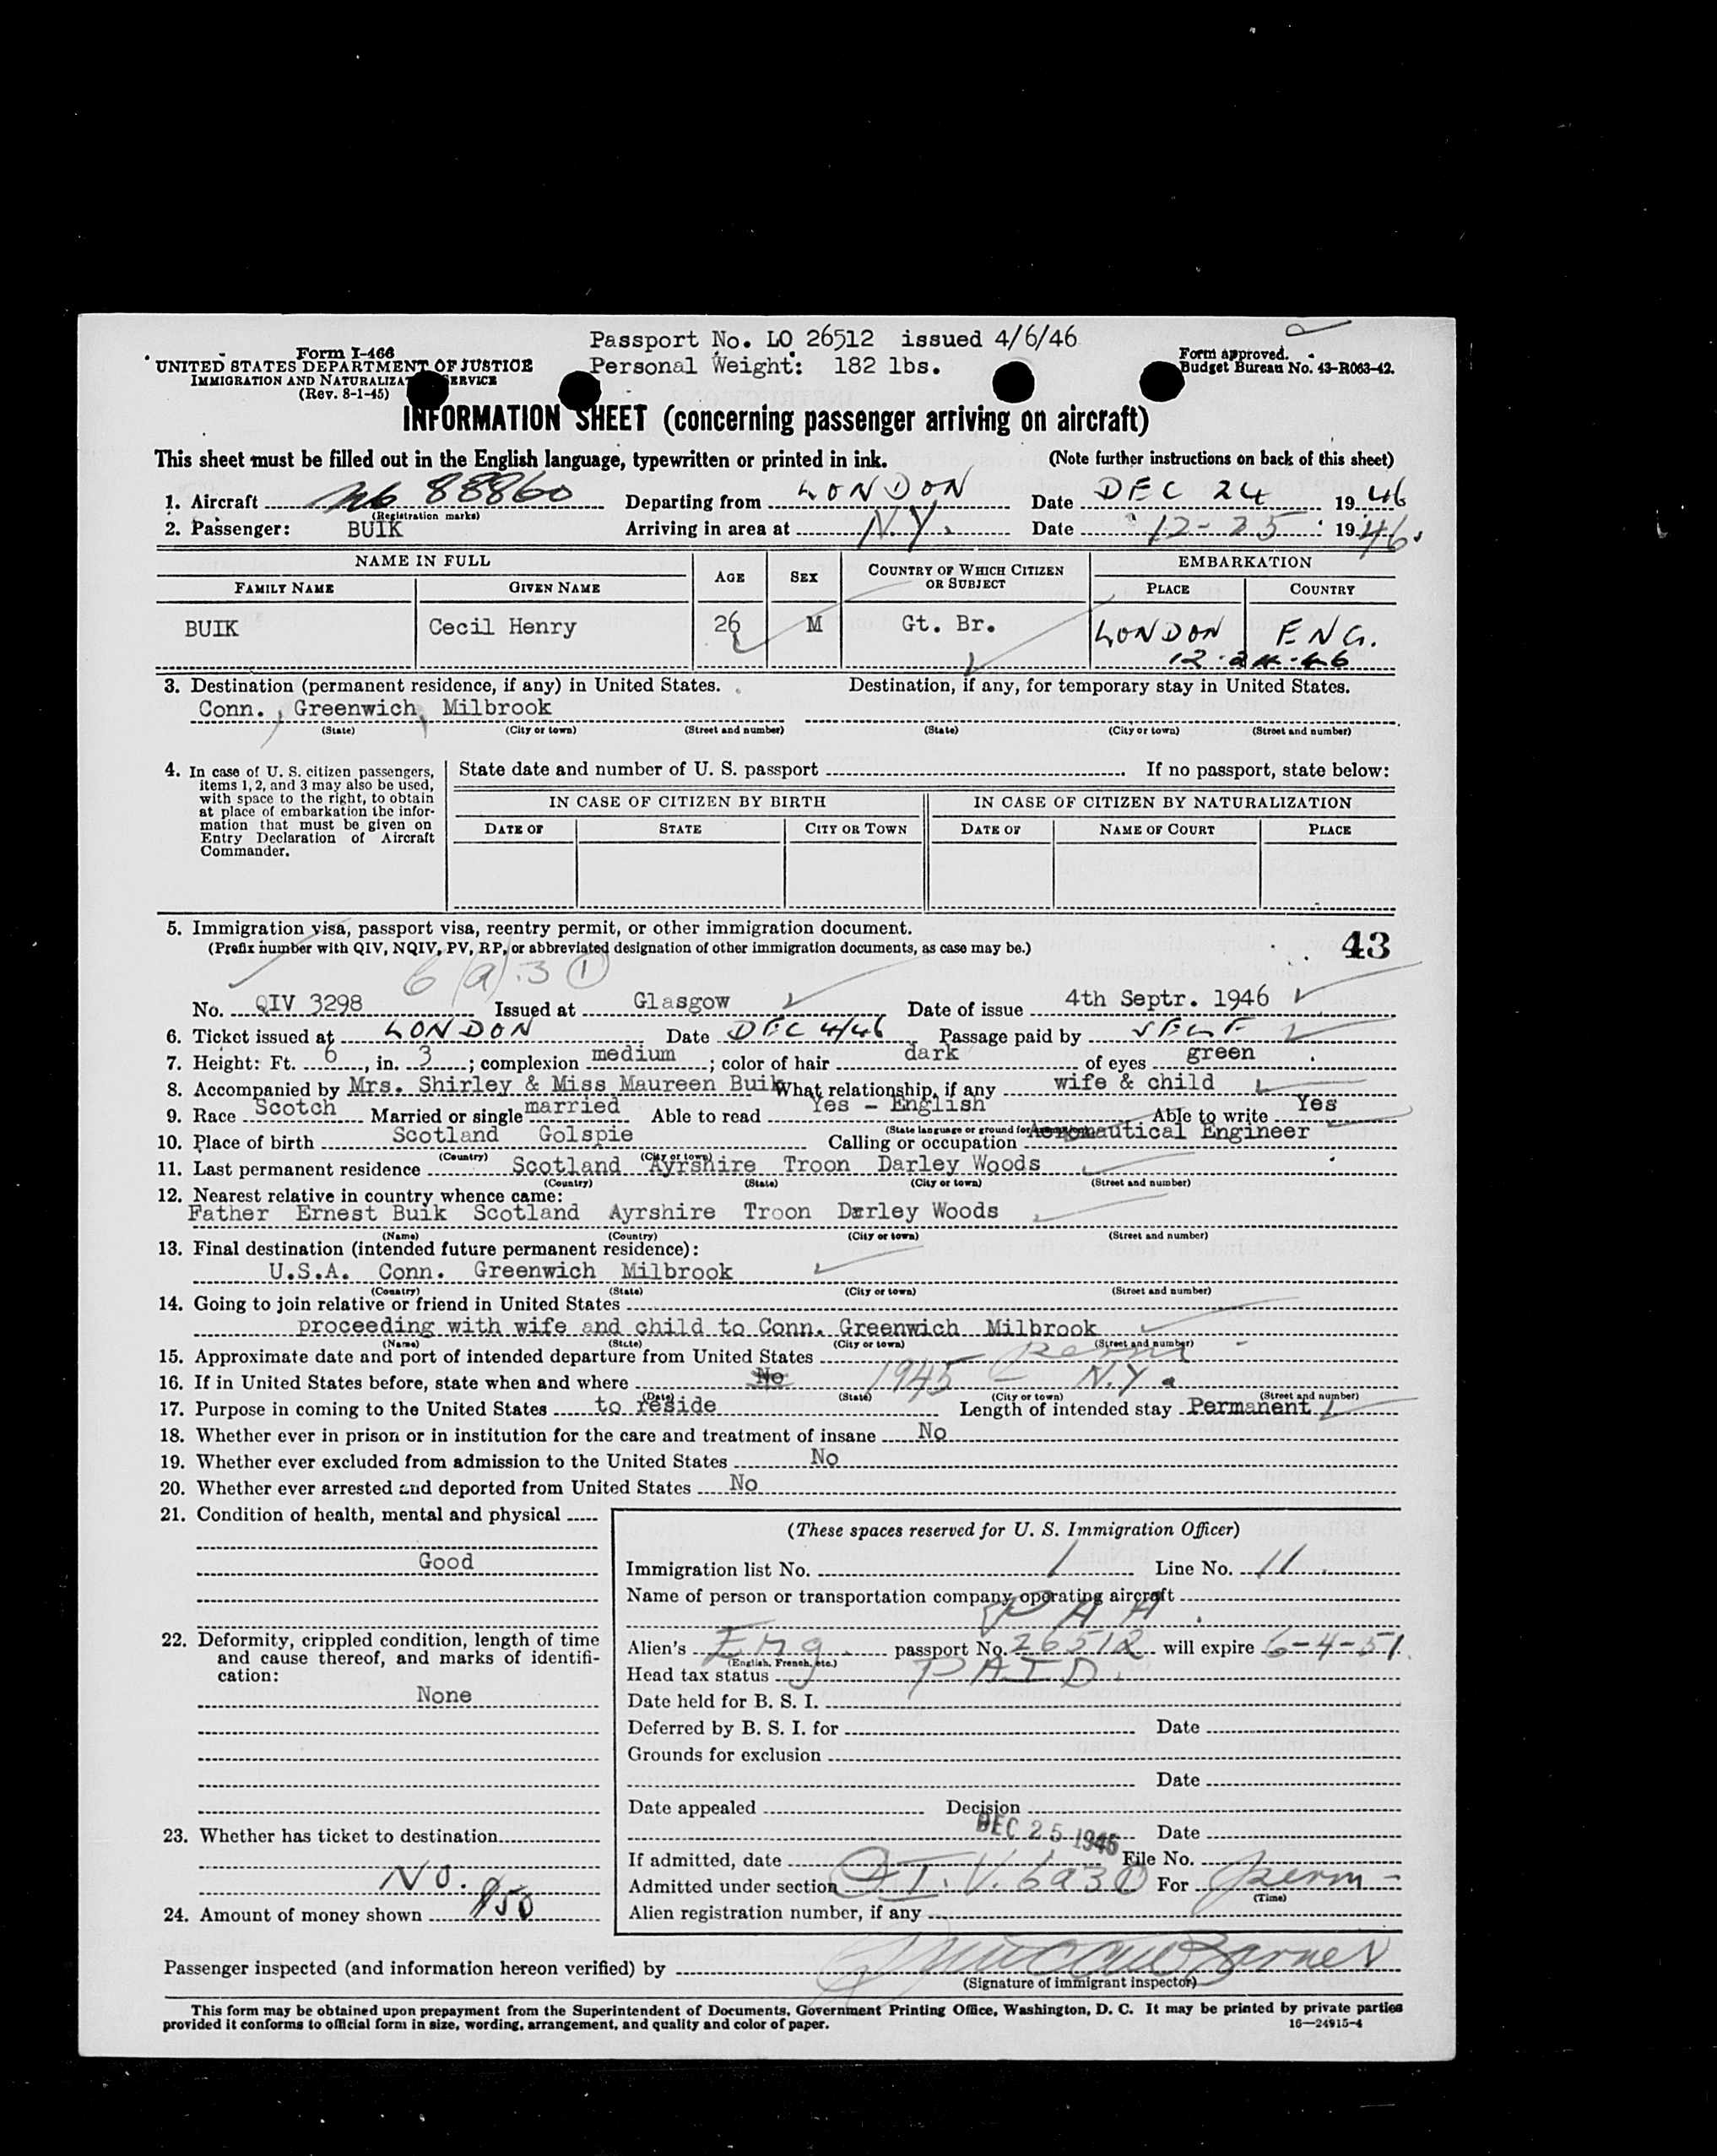 Passport No. LO 26512 issued 4/6/46
Personal Weight: 182 lbs.
Form I-466
UNITED STATES DEPARTMENT OF JUSTICE
IMMIGRATION AND NATURALIZAT ERVICE
(Rev. 8-1-45)
Form approved.
Budget Bureau No. 43-R063-42.
INFORMATION SHEET (concerning passenger arriving on aircraft)
This sheet must be filled out in the English language, typewritten or printed in ink. (Note further instructions on back of this sheet)
1. Aircraft 88860 Departing from LONDON Date DEC 24 1946
(Registration marks)
2. Passenger: BUIK Arriving in area at N.Y. Date 12-25 1946.
NAME IN FULL AGE SEX COUNTRY OF WHICH CITIZEN OR SUBJECT EMBARKATION
FAMILY NAME GIVEN NAME PLACE COUNTRY
BUIK Cecil Henry 26 M Gt. Br. LONDON ENG.
12.24.46
3. Destination (permanent residence, if any) in United States. Destination, if any, for temporary stay in United States.
Conn., Greenwich, Milbrook
(State) (City or town) (Street and number) (State) (City or town) (Street and number)
4. In case of U. S. citizen passengers, items 1, 2, and 3 may also be used, with space to the right, to obtain at place of embarkation the information that must be given on Entry Declaration of Aircraft Commander.
State date and number of U. S. passport If no passport, state below:
IN CASE OF CITIZEN BY BIRTH IN CASE OF CITIZEN BY NATURALIZATION
DATE OF STATE CITY OR TOWN DATE OF NAME OF COURT PLACE
5. Immigration visa, passport visa, reentry permit, or other immigration document.
(Prefix number with QIV, NQIV, PV, RP, or abbreviated designation of other immigration documents, as case may be.)
43
6(a).3 (1)
No. QIV 3298 Issued at Glasgow Date of issue 4th Septr. 1946
6. Ticket issued at LONDON Date DEC 4/46 Passage paid by SELF
7. Height: Ft. 6, in. 3; complexion medium; color of hair dark of eyes green
8. Accompanied by Mrs. Shirley & Miss Maureen Buik What relationship, if any wife & child
9. Race Scotch Married or single married Able to read Yes - English Able to write Yes
10. Place of birth Scotland Golspie Calling or occupation Aeronautical Engineer
(Country) (City or town)
11. Last permanent residence Scotland Ayrshire Troon Darley Woods
(Country) (State) (City or town) (Street and number)
12. Nearest relative in country whence came:
Father Ernest Buik Scotland Ayrshire Troon Darley Woods
(Name) (Country) (City or town) (Street and number)
13. Final destination (intended future permanent residence):
U.S.A. Conn. Greenwich Milbrook
(Country) (State) (City or town) (Street and number)
14. Going to join relative or friend in United States
proceeding with wife and child to Conn. Greenwich Milbrook
(Name) (State) (City or town) (Street and number)
15. Approximate date and port of intended departure from United States
16. If in United States before, state when and where No 1945 - N.Y.
(Date) (State) (City or town) (Street and number)
17. Purpose in coming to the United States to reside Length of intended stay Permanent
18. Whether ever in prison or in institution for the care and treatment of insane No
19. Whether ever excluded from admission to the United States No
20. Whether ever arrested and deported from United States No
21. Condition of health, mental and physical
Good
22. Deformity, crippled condition, length of time and cause thereof, and marks of identification:
None
23. Whether has ticket to destination
NO.
24. Amount of money shown $50
(These spaces reserved for U. S. Immigration Officer)
Immigration list No. 1 Line No. 11
Name of person or transportation company operating aircraft
PAA
Alien's Eng. passport No. 26512 will expire 6-4-51
(English, French, etc.)
Head tax status PAID.
Date held for B. S. I.
Deferred by B. S. I. for Date
Grounds for exclusion
Date
Date appealed Decision
Date
DEC 25 1946
If admitted, date File No.
Admitted under section Q.I.V. 6a3(1) For perm -
(Time)
Alien registration number, if any
Passenger inspected (and information hereon verified) by
(Signature of immigrant inspector)
This form may be obtained upon prepayment from the Superintendent of Documents, Government Printing Office, Washington, D. C. It may be printed by private parties
provided it conforms to official form in size, wording, arrangement, and quality and color of paper. 16—24915-4